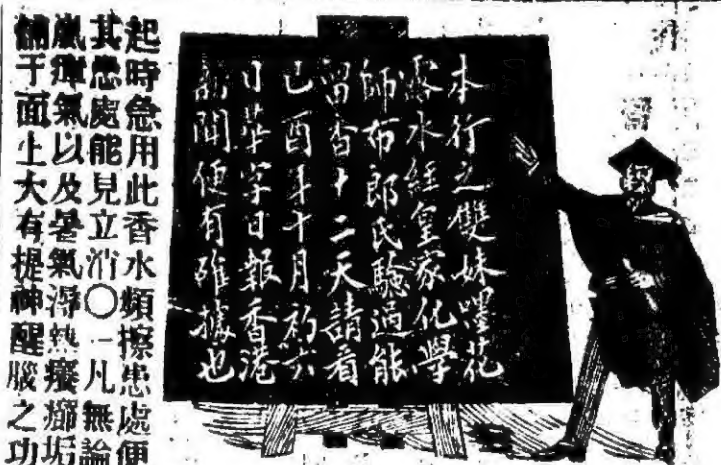 本行之雙妹嚜花
露水經皇家化學
師布郎氏驗過能
留香十二天請看
己酉年十月初六
日華字日報香港
新聞便有確據也
起時急用此香水頻擦患處便
其患處能見立消〇一凡無論
嵐瘴氣以及暑氣浮熱癤垢
于面上大有提神醒腦之功